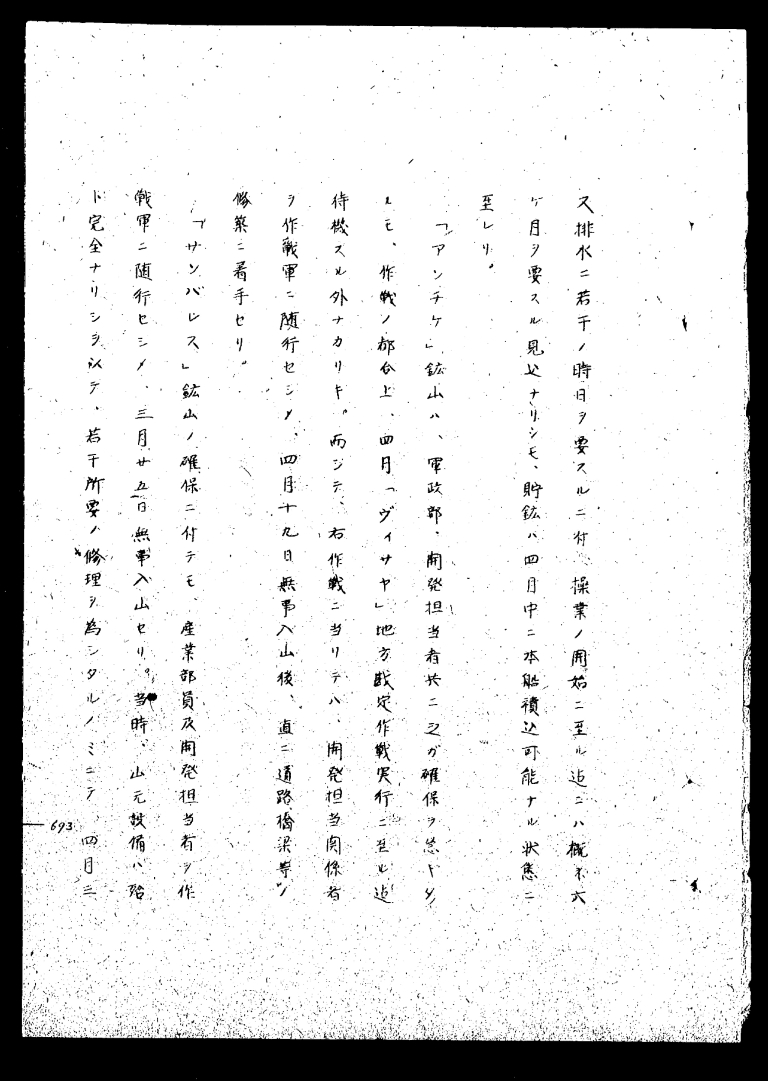 又排水ニ若干ノ時日ヲ要スルニ付、操業ノ開始ニ至ル迄ニハ概ネ六
ケ月ヲ要スル見込ナリシモ、貯鉱ハ四月中ニ本船積込可能ナル状態ニ
至レリ。
「アンチケ」鉱山ハ、軍政部、開発担当者共ニ之ガ確保ヲ急ギタ
ルモ、作戦ノ都合上、四月「ヴィサヤ」地方戡定作戦実行ニ至ル迄
待機スル外ナカリキ。而シテ、右作戦ニ当リテハ、開発担当関係者
ヲ作戦軍ニ随行セシメ、四月十九日無事入山後、直ニ道路橋梁等ノ
修築ニ着手セリ。
「サンバレス」鉱山ノ確保ニ付テモ、産業部員及開発担当者ヲ作
戦軍ニ随行セシメ、三月廿五日無事入山セリ。当時、山元設備ハ殆
ド完全ナリシヲ以テ、若干所要ノ修理ヲ為シタルノミニテ、四月三
693